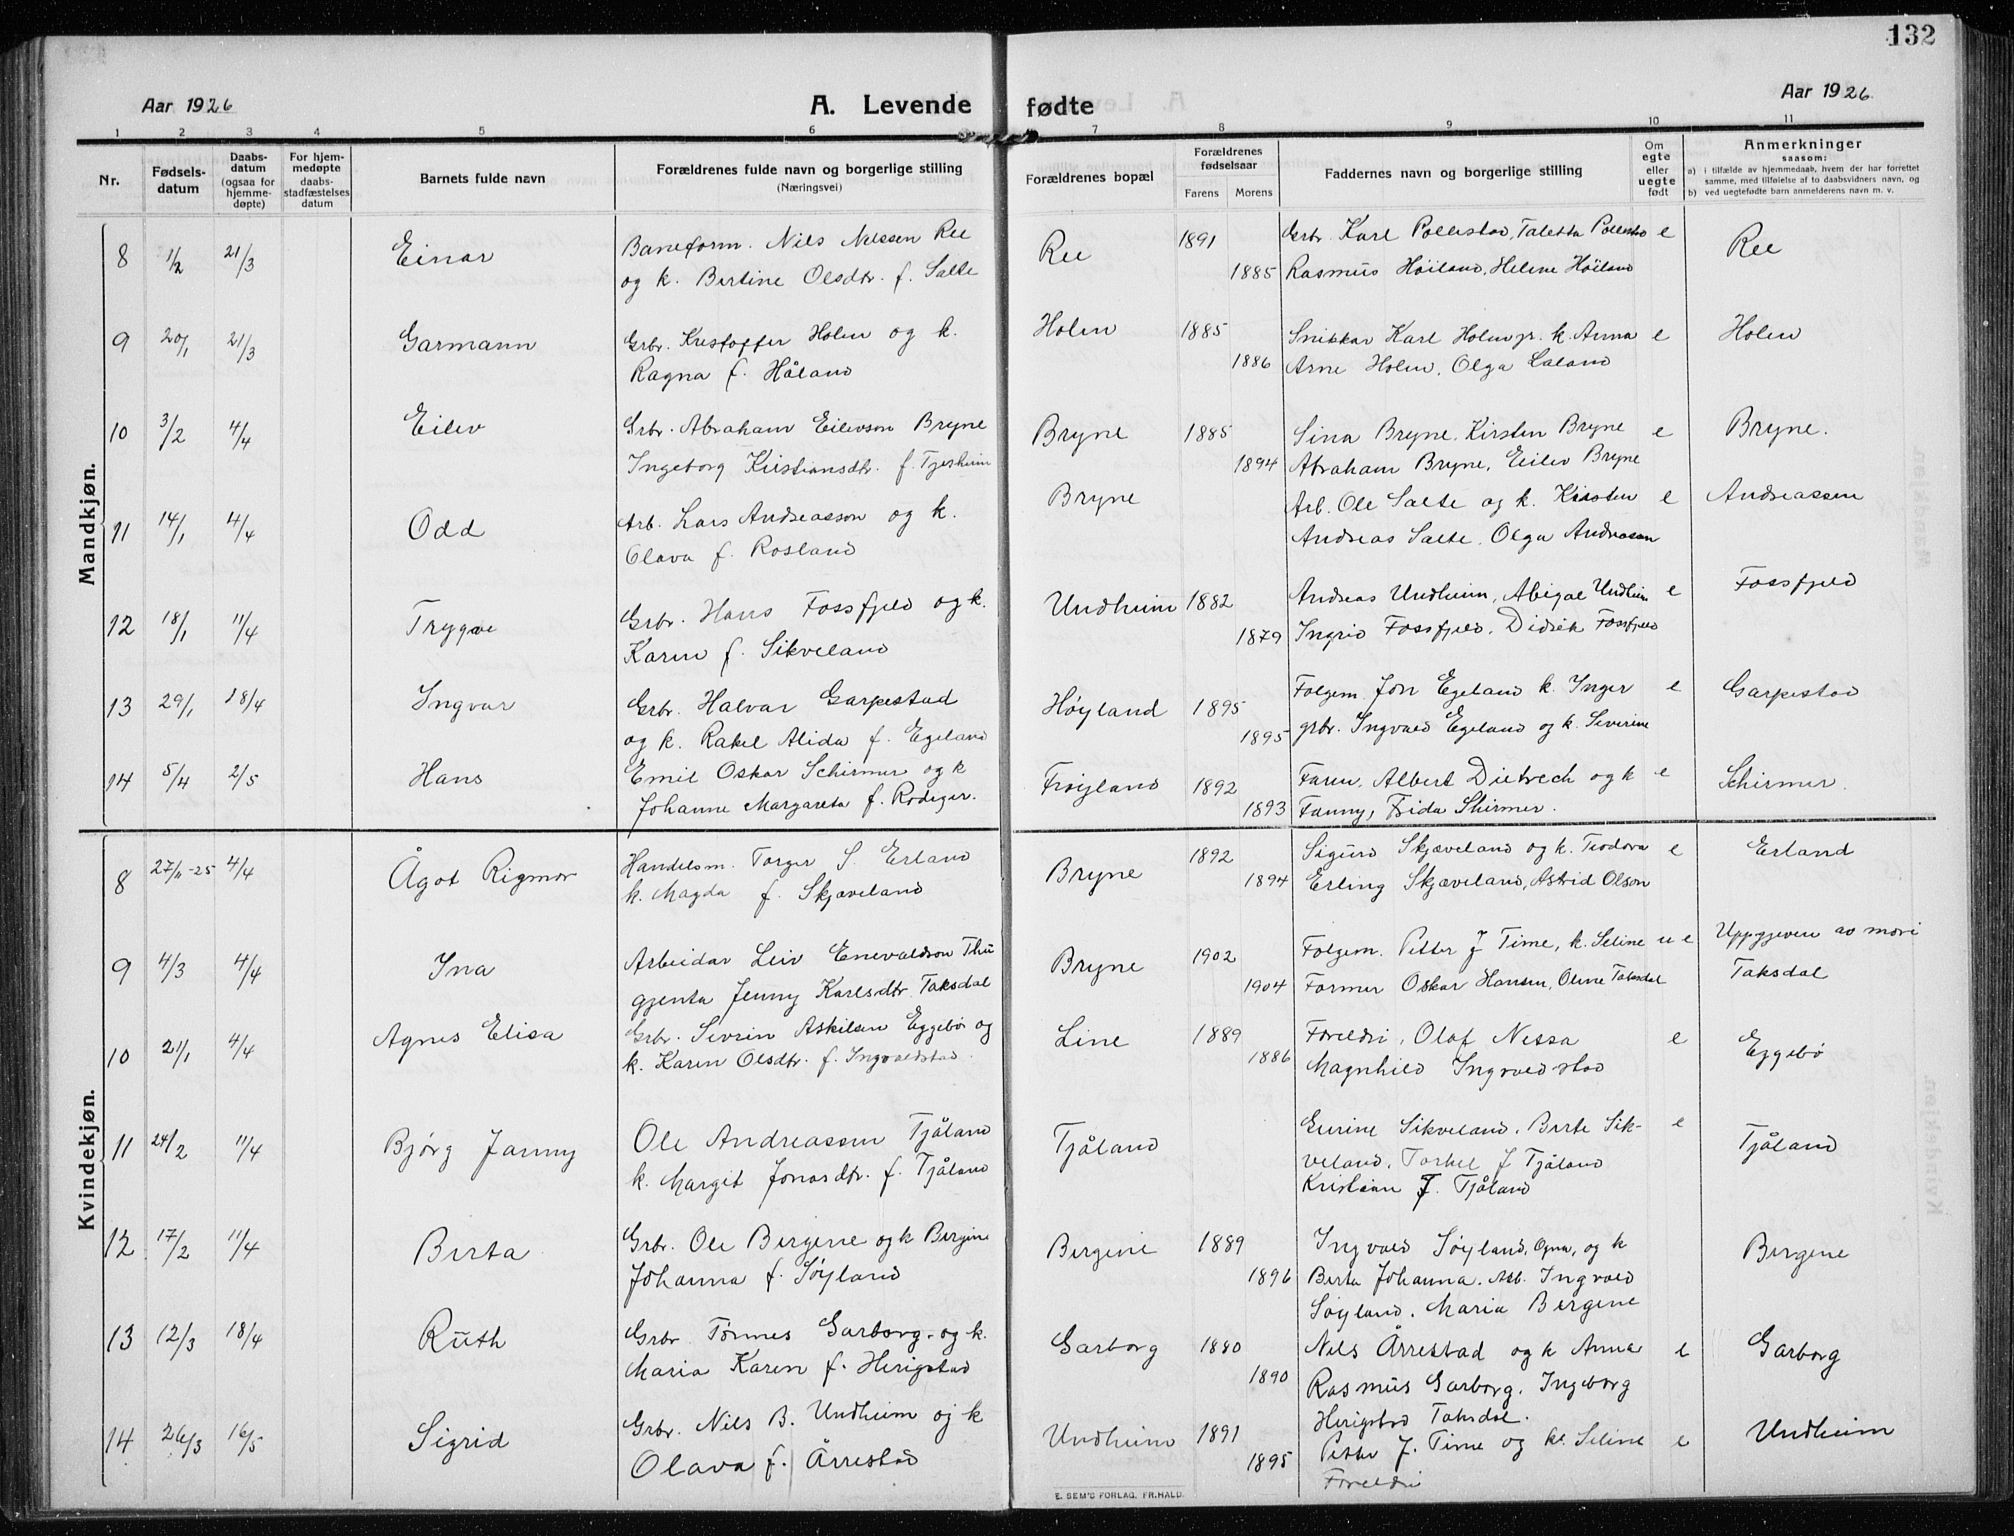 132
Aar 1926
A. Levende fødte
Aar 1926
1 2 3 4 5 6 7 8 9 10 11
Nr.
Fødsels-
datum
Daabs-
datum
(ogsaa for
hjemme-
døpte)
For hjem-
medøpte
daabs-
stadfæstelses
datum
Barnets fulde navn
Forældrenes fulde navn og borgerlige stilling
(Næringsvei)
Forældrenes bopæl
Forældrenes
fødselsaar
Farens Morens
Faddernes navn og borgerlige stilling
Om
egte
eller
uegte
født
Anmerkninger
saasom:
a) i tilfælde av hjemmedaab, hvem der har forrettet
samme, med tilføielse af to daabsvidners navn, og
b) ved uegtefødte barn anmelderens navn m. v.
Mandkjøn.
8 1/2 21/3 Einar Baneform. Nils Nilssen Ree Ree 1891 Grb. Karl Pollestad, Taletta Pollestad e Ree
og k. Bertine Olsdtr. f. Salte 1885 Rasmus Høiland, Helene Høiland
9 20/1 21/3 Garmann Grb. Kristoffer Holen og k. Holen 1885 Snikkar Karl Holen jr. k. Anna e Holen
Ragna f. Håland 1886 Arne Holen, Olga Laland
10 3/2 4/4 Eilev Grb. Abraham Eilevson Bryne Bryne 1885 Sina Bryne, Kirsten Bryne e Bryne.
Ingeborg Kristiansdtr. f. Tjesheim 1894 Abraham Bryne, Eilev Bryne
11 14/1 4/4 Odd Arb. Lars Andreasson og k. Bryne Arb. Ole Salte og k. Kirsten e Andreassen
Olava f. Rosland Andreas Salte, Olga Andreasen
12 18/1 11/4 Trygve Grb. Hans Fossfjeld og k. Undheim 1882 Andreas Undheim, Abigael Undheim e Fossfjeld
Karen f. Sikveland 1879 Ingrid Fossfjeld, Didrik Fossfjeld
13 29/1 18/4 Ingvar Grb. Halvar Garpestad Høyland 1895 Folgem. Jon Egeland k. Inger e Garpestad
og k. Rakel Alida f. Egeland 1895 grb. Ingvald Egeland og k. Severine
14 5/4 2/5 Hans Emil Oskar Schirmer og k Frøyland 1892 Faren, Albert Dietrech og k e Schirmer.
Johanne Margareta f. Rödiger. 1893 Fanny, Frida Shirmer.
Kvindekjøn.
8 27/11-25 4/4 Ågot Rigmor Handelsm. Torger S. Erland Bryne 1892 Sigurd Skjæveland og k. Teodora e Erland
k. Magda f. Skjæveland 1894 Erling Skjæveland, Astrid Olson
9 4/3 4/4 Ina Arbeidar Leiv Enevaldson Thu Bryne 1902 Folgem. Petter J Time, k. Seline u e Uppgjeven av mori
gjenta Jenny Karlsdtr. Taksdal 1904 Former Oskar Hansen, Oline Taksdal Taksdal
10 21/1 4/4 Agnes Elisa Grb. Sevrin Askilsen Eggebø og Line 1889 Foreldri, Olaf Nessa e Eggebø
k. Karen Olsdtr. f. Ingvaldstad. 1886 Magnhild Ingvaldstad
11 24/2 11/4 Bjørg Janny Ole Andreassen Tjåland Tjåland Gurine Sikveland, Berte Sik- e Tjåland
k. Margit Jonasdtr. f. Tjåland veland, Torkel J Tjåland
Kristian J. Tjåland
12 17/2 11/4 Berta Grb. Ole Bergene og k Bergine Bergene 1889 Ingvald Søyland, Ogna, og k Bergene
Johanna f. Søyland 1896 Berta Johanna. Arb. Ingvald
Søyland, Maria Bergene
13 12/3 18/4 Ruth Grb. Tønnes Garborg. og k. Garborg 1880 Nils Årrestad og k Anna e Garborg
Maria Karen f. Herigstad 1890 Rasmus Garborg, Ingeborg
Herigstad Taksdal.
14 26/3 16/5 Sigrid Grb. Nils B. Undheim og k Undheim 1891 Petter J. Time og k. Seline e Undheim
Olava f. Årrestad 1895 Foreldri
E. SEM'S FORLAG, FR.HALD.